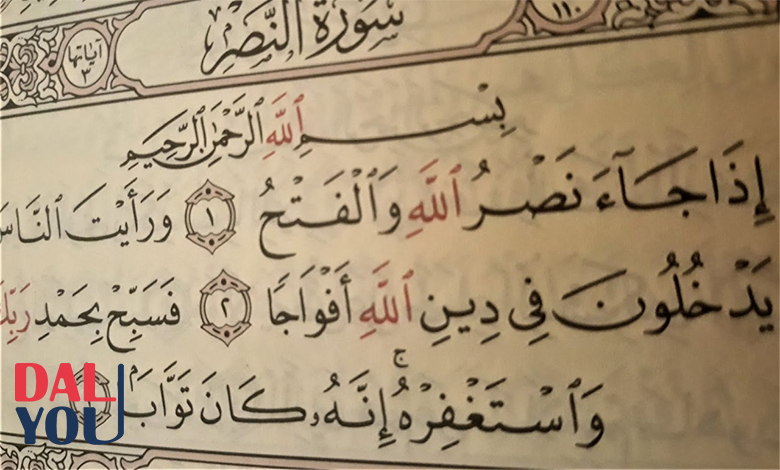 سُورَةُ النَّصْرِ
١١٠
آيَاتُهَا ٣
بِسْمِ ٱللَّهِ ٱلرَّحْمَٰنِ ٱلرَّحِيمِ
إِذَا جَآءَ نَصْرُ ٱللَّهِ وَٱلْفَتْحُ ١ وَرَأَيْتَ ٱلنَّاسَ
يَدْخُلُونَ فِي دِينِ ٱللَّهِ أَفْوَاجًا ٢ فَسَبِّحْ بِحَمْدِ رَبِّكَ
وَٱسْتَغْفِرْهُ ۚ إِنَّهُۥ كَانَ تَوَّابَۢا
DAL
YOU